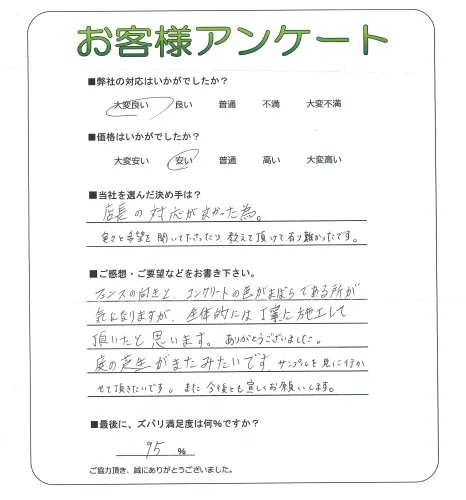 お客様アンケート
■弊社の対応はいかがでしたか?
大変良い 良い 普通 不満 大変不満
■価格はいかがでしたか?
大変安い 安い 普通 高い 大変高い
■当社を選んだ決め手は?
店長の対応がよかった為。
色々と希望を聞いて下さったり 教えて頂けて有り難かったです。
■ご感想・ご要望などをお書き下さい。
フェンスの向きと、コンクリートの色がまばらである所が
気になりますが、全体的には丁寧に施工して
頂いたと思います。ありがとうございました。
庭の芝生がまたみたいです サンプルを見に行か
せて頂きたいです。また 今後とも宜しくお願いします。
■最後に、ズバリ満足度は何%ですか?
95 %
ご協力頂き、誠にありがとうございました。